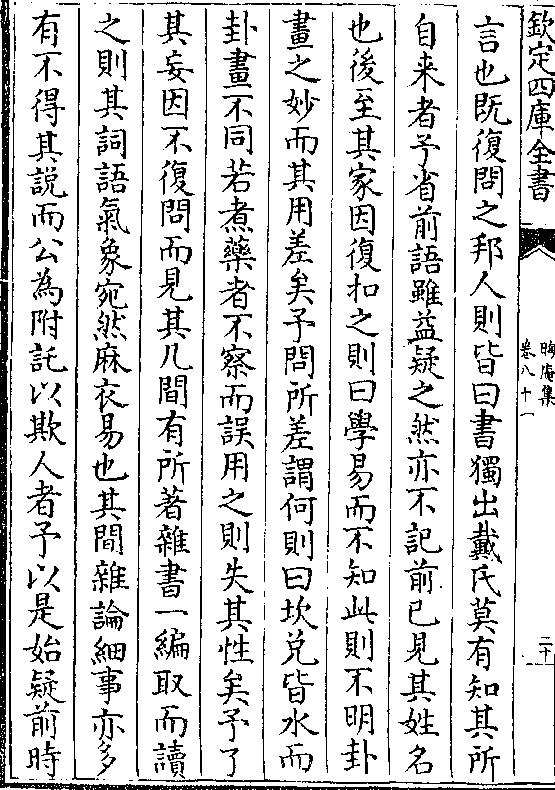 欽定四庫全書
晦庵集
卷八十一
二十
言也既復問之邦人則皆曰書獨出戴氏莫有知其所
自来者予省前語雖益疑之然亦不記前已見其姓名
也後至其家因復扣之則曰學易而不知此則不明卦
畫之妙而其用差矣予問所差謂何則曰坎兑皆水而
卦畫不同若煮藥者不察而誤用之則失其性矣予了
其妄因不復問而見其几間有所著雜書一編取而讀
之則其詞語氣象宛然麻衣易也其間雜論細事亦多
有不得其説而公為附託以欺人者予以是始疑前時